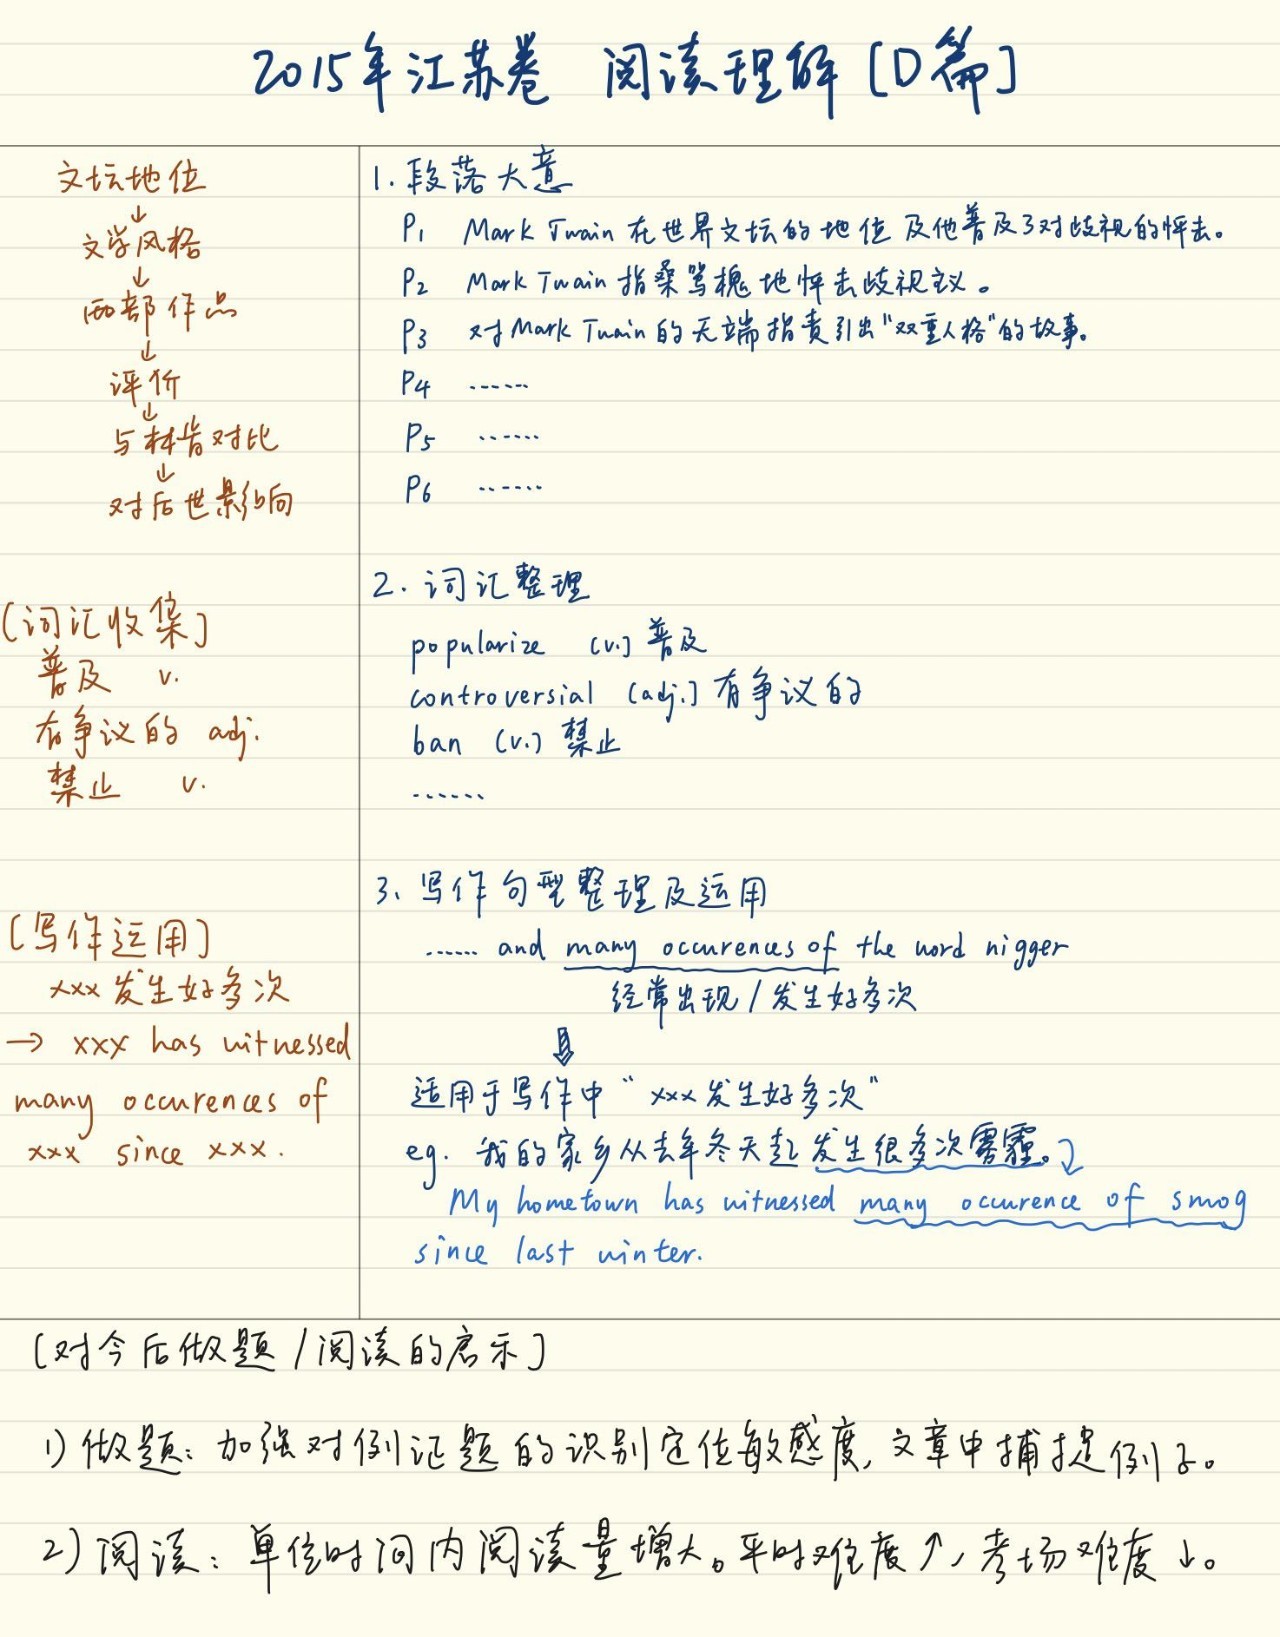 2015年江苏卷 阅读理解[D篇]
文坛地位
↓
文学风格
↓
两部作品
↓
评价
↓
与林肯对比
↓
对后世影响
1.段落大意
P1 Mark Twain在世界文坛的地位及他普及了对歧视的怦击。
P2 Mark Twain指桑骂槐地怦击歧视主义。
P3 对Mark Twain的无端指责引出"双重人格"的故事。
P4 ......
P5 ......
P6 ......
[词汇收集]
普及 v.
有争议的 adj.
禁止 v.
2.词汇整理
popularize (v.)普及
controversial (adj.)有争议的
ban (v.)禁止
......
[写作运用]
xxx发生好多次
→ xxx has witnessed
many occurences of
xxx since xxx.
3、写作句型整理及运用
...... and many occurences of the word nigger
经常出现/发生好多次
⇓
适用于写作中"xxx发生好多次"
eg. 我的家乡从去年冬天起发生很多次雾霾。
My hometown has witnessed many occurence of smog
since last winter.
[对今后做题/阅读的启示]
1)做题:加强对例证题的识别定位敏感度,文章中捕捉例子。
2)阅读:单位时间内阅读量增大。平时难度↑,考场难度↓。